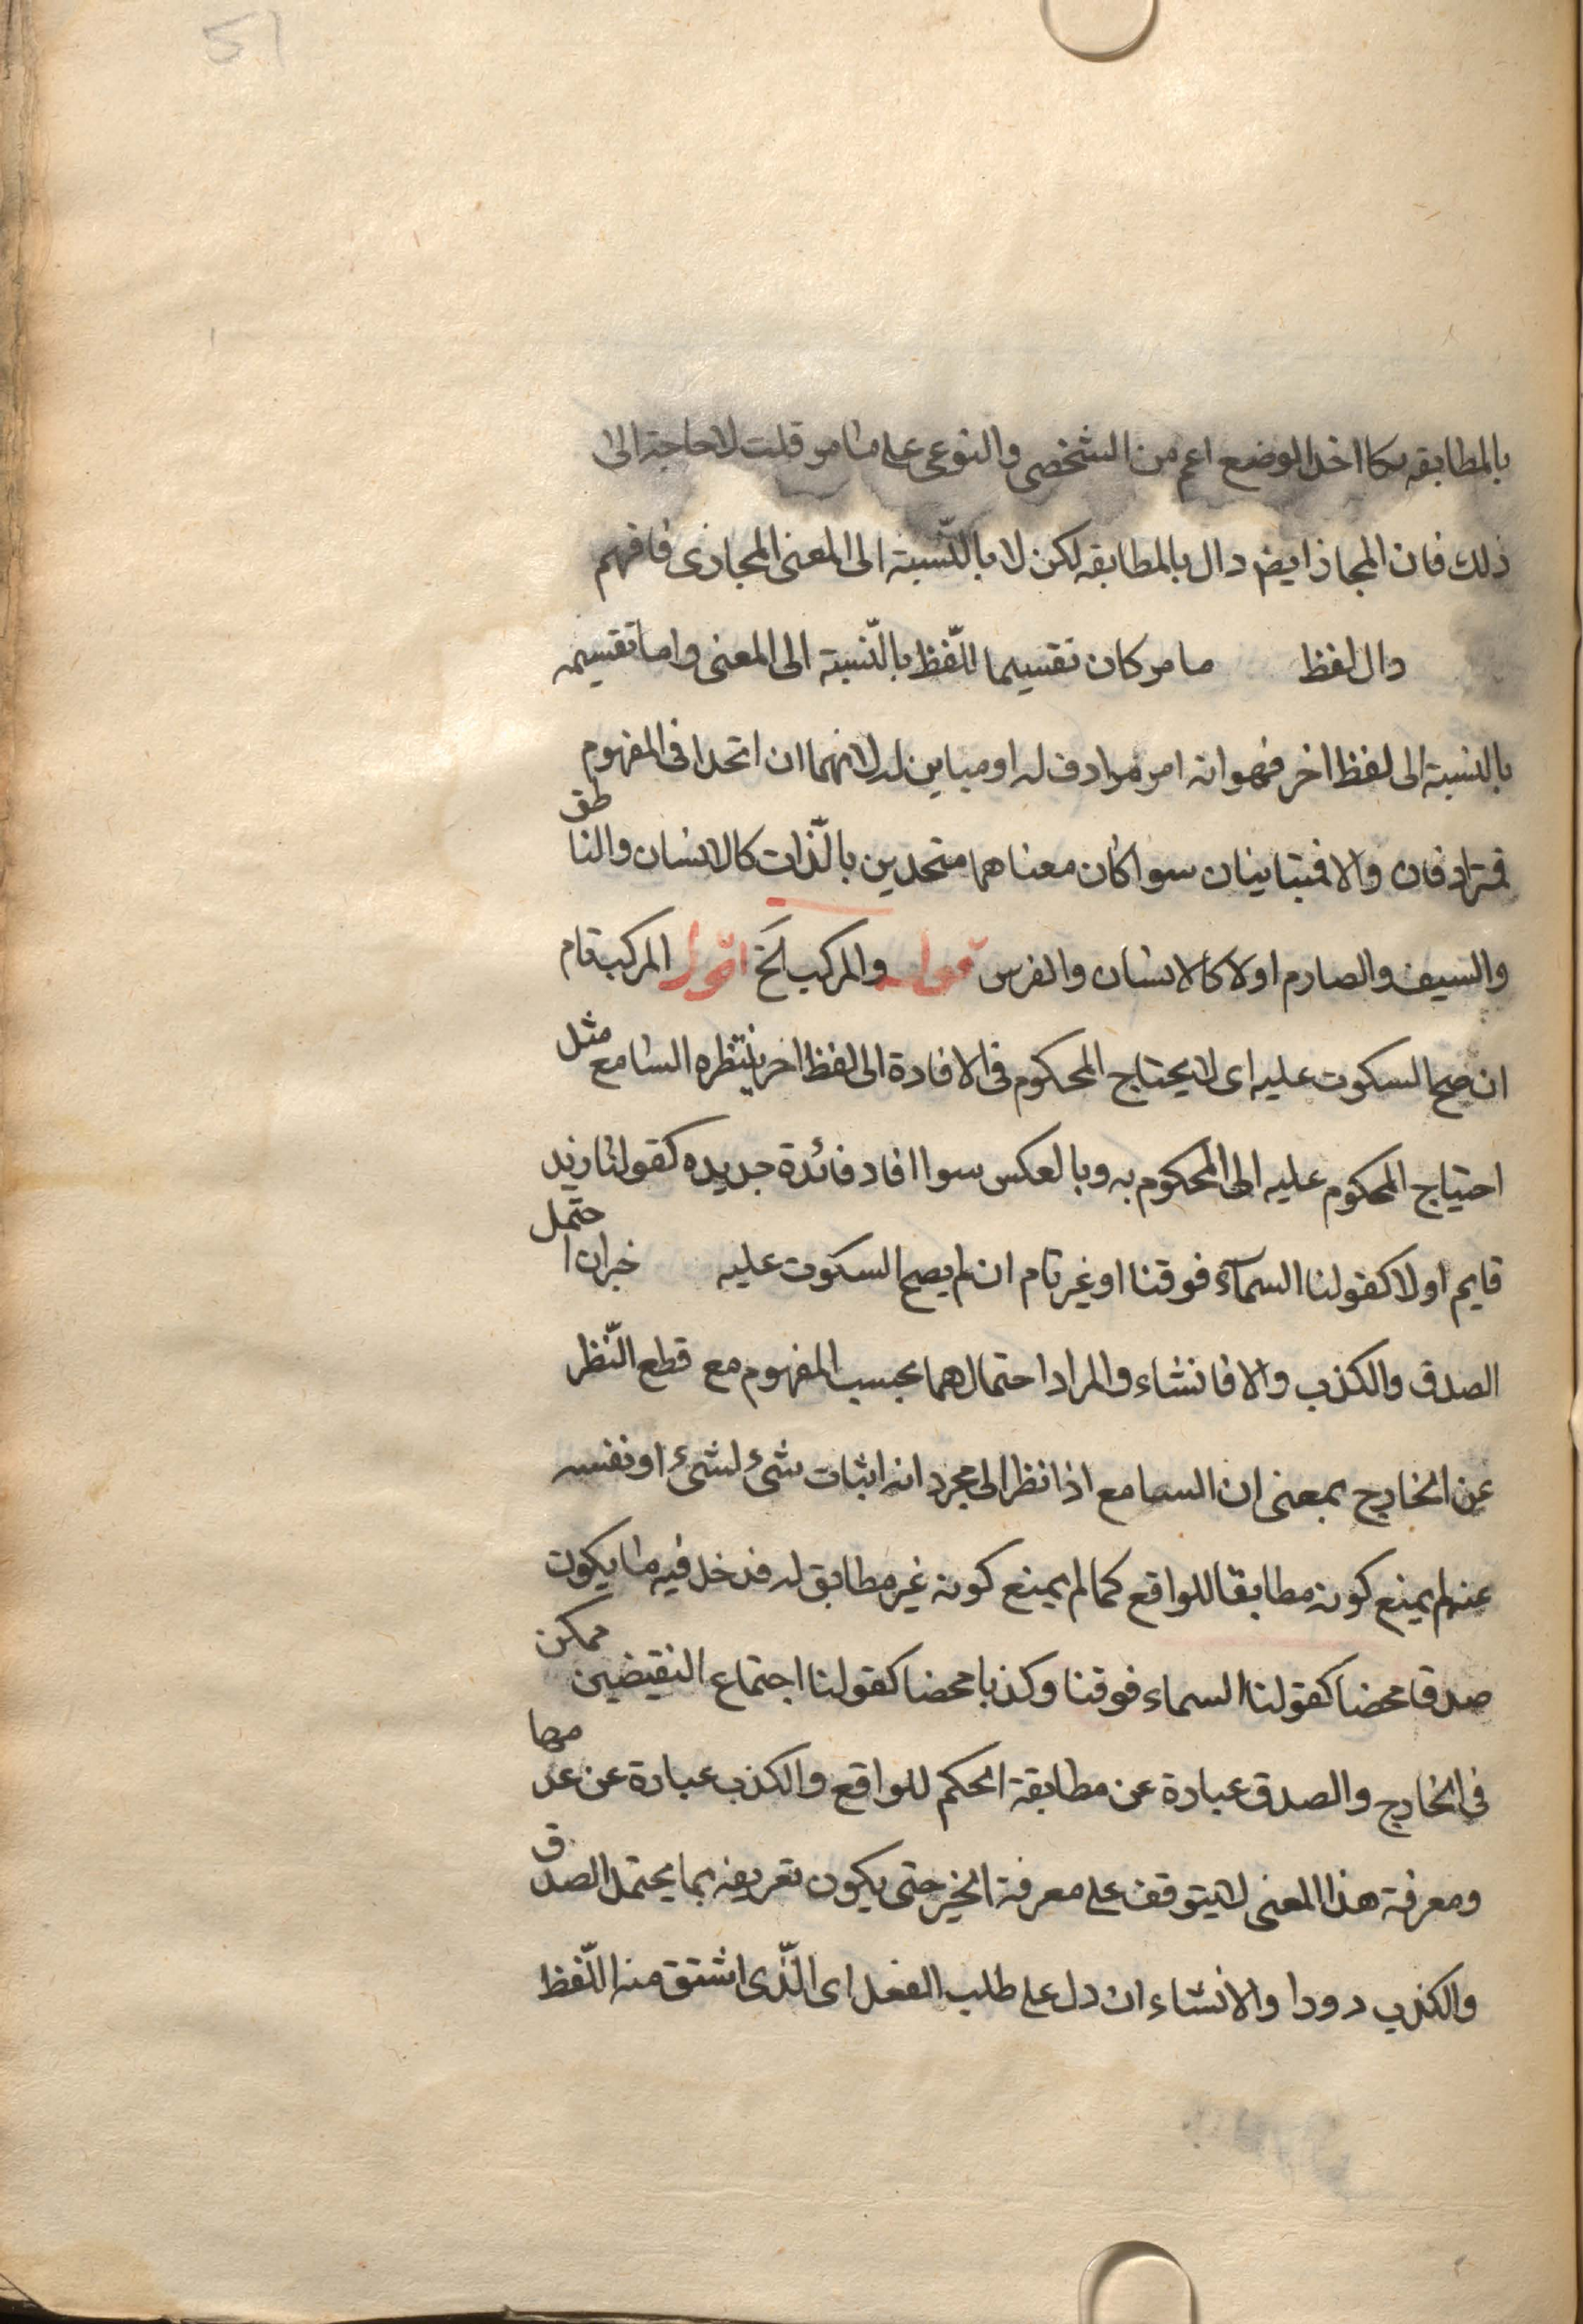 51
بالمطابقه كما اخذ الوضع اعم من الشخصى والنوعى على ما مر قلت لا حاجة الى
ذلك فان المجاز ايض دال بالمطابقه لكن لا بالنّسبة الى المعنى المجازى فافهم
دال لفظ ما مر كان تقسيما للّفظ بالنّسبة الى المعنى واما تقسيمه
بالنسبة الى لفظ اخر فهو انه امر مرادف له او مباين له لانهما ان اتحدا فى المفهوم
فمترادفان والا فمتباينان سوا كان معناهما متحدين بالذّات كالانسان والناطق
والسيف والصارم اولا كالانسان والفرس قوله والمركب الخ اقول المركب تام
ان صح السكوت عليه اى لا يحتاج المحكوم فى الافادة الى لفظ اخر ينتظره السامع مثل
احتياج المحكوم عليه الى المحكوم به وبالعكس سوا افاد فائدة جديده كقولنا زيد
قايم اولا كقولنا السمآء فوقنا او غير تام ان لم يصح السكوت عليه خبر ان احتمل
الصدق والكذب والا فانشاء والمراد احتمالهما بحسب المفهوم مع قطع النّظر
عن الخارج بمعنى ان السامع اذا نظر الى مجرد انه اثبات شئ لشئ او نفسه
عنه لم يمنع كونه مطابقا للواقع كما لم يمنع كونه غير مطابق له فدخل فيه ما يكون
صدقا محضا كقولنا السماء فوقنا وكذبا محضا كقولنا اجتماع النقيضين ممكن
فى الخارج والصدق عبارة عن مطابقة الحكم للواقع والكذب عبارة عن عدمها
ومعرفة هذا المعنى لا يتوقف على معرفة الخبر حتى يكون تعريفه بما يحتمل الصدق
والكذب دورا والانشاء ان دل على طلب الفعل اى الّذى اشتق منه اللّفظ